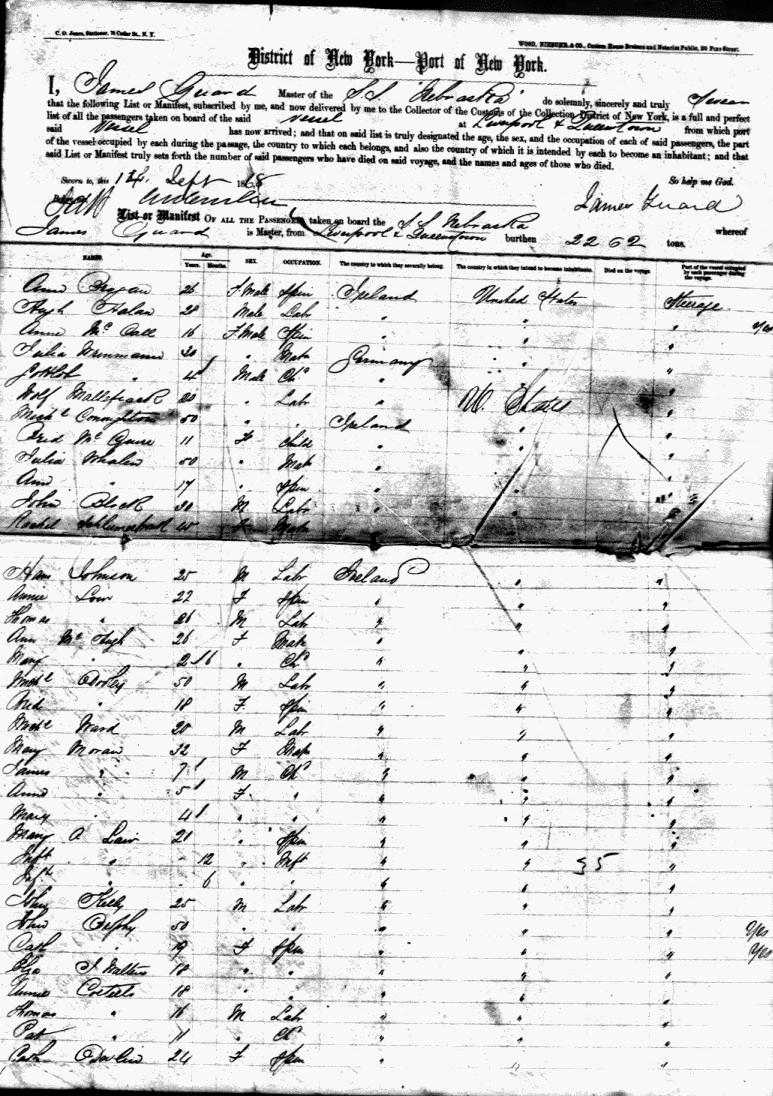 C. O. Jones, Stationer, 76 Cedar St., N. Y.
WOOD, NIEBUHR & CO., Custom House Brokers and Notaries Public, 20 Pine Street.
District of New York—Port of New York.
I, James Guard Master of the S.S. Nebraska do solemnly, sincerely and truly Swear
that the following List or Manifest, subscribed by me, and now delivered by me to the Collector of the Customs of the Collection District of New York, is a full and perfect
list of all the passengers taken on board of the said vessel at Liverpool & Queenstown from which port
said Vessel has now arrived; and that on said list is truly designated the age, the sex, and the occupation of each of said passengers, the part
of the vessel occupied by each during the passage, the country to which each belongs, and also the country of which it is intended by each to become an inhabitant; and that
said List or Manifest truly sets forth the number of said passengers who have died on said voyage, and the names and ages of those who died.
Sworn to, this 14. Sept 1868 So help me God.
James Guard
List or Manifest OF ALL THE PASSENGERS taken on board the S S Nebraska whereof
James Guard is Master, from Liverpool & Queenstown burthen 2262 tons.
NAMES. Age. Years. Months. SEX. OCCUPATION. The country to which they severally belong. The country in which they intend to become inhabitants. Died on the voyage. Part of the vessel occupied by each passenger during the voyage.
Ann 26 F. Male Spin Ireland United States Steerage
Hugh 28 Male Lab " " "
Annie Mc Call 16 F. Male Spin " " " Yes
Julia 30 " Mat Germany " "
Gottlob " 4 Male Chd " " "
Wolf 20 " Lab " U. States "
Michl 50 " " Ireland " "
Mc Guire 11 F Child " " "
Julia Whalen 50 " Mat " " "
Ann " 17 " Spin " " "
John Black 30 M Lab " " "
F Mat
Hans Johnson 25 M Labr Ireland " "
Annie 22 F Spin " " "
Thomas " 26 M Lab " " "
Ann Mc Hugh 26 F Mat " " "
Mary " 2 6 " Chd " " "
Michl 50 M Labr " " "
" 18 F Spin " " "
Michl Ward 20 M Labr " " "
Mary Moran 32 F Mat " " "
James " 7 M Chd " " "
Anne " 5 F " " " "
Mary " 4 " " " " "
Mary A 21 " Spin " " "
Inft " 12 " Inft " " 35 "
Inft " 6 " " " " "
John Kelly 25 M Labr " " "
John 50 " " " " " Yes
Cath " 19 F Spin " " " Yes
Eliza 18 " " " " "
Annie 18 " " " " "
Thomas " 16 M Lab " " "
Pat " 11 " Chd " " "
Cath 24 F Spin " " "